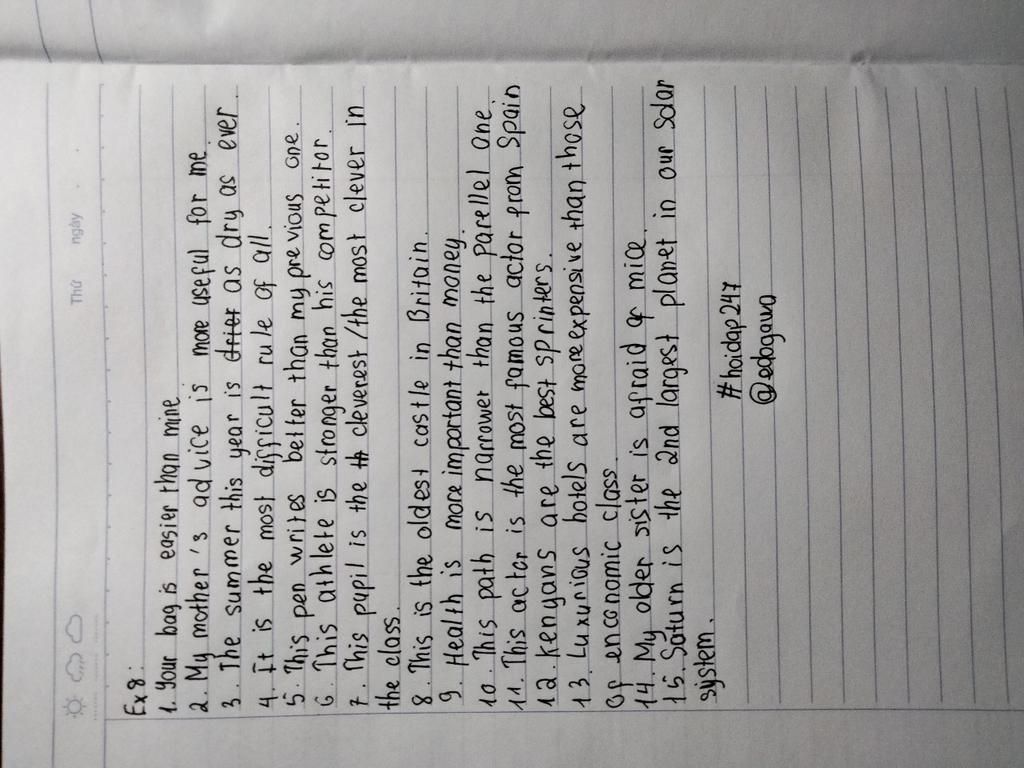 Thứ ngày
Ex 8:
1. Your bag is easier than mine
2. My mother's advice is more useful for me
3. The summer this year is drier as dry as ever
4. It is the most difficult rule of all.
5. This pen writes better than my previous one.
6. This athlete is stronger than his competitor
7. This pupil is the th cleverest/the most clever in
the class.
8. This is the oldest castle in Britain.
9. Health is more important than money.
10. This path is narrower than the parellel one.
11. This actor is the most famous actor from Spain
12. Kenyans are the best sprinters.
13. Luxurious hotels are more expensive than those
of enconomic class.
14. My older sister is afraid of mice.
15. Saturn is the 2nd largest planet in our solar
system.
#hoidap247
@edogawa